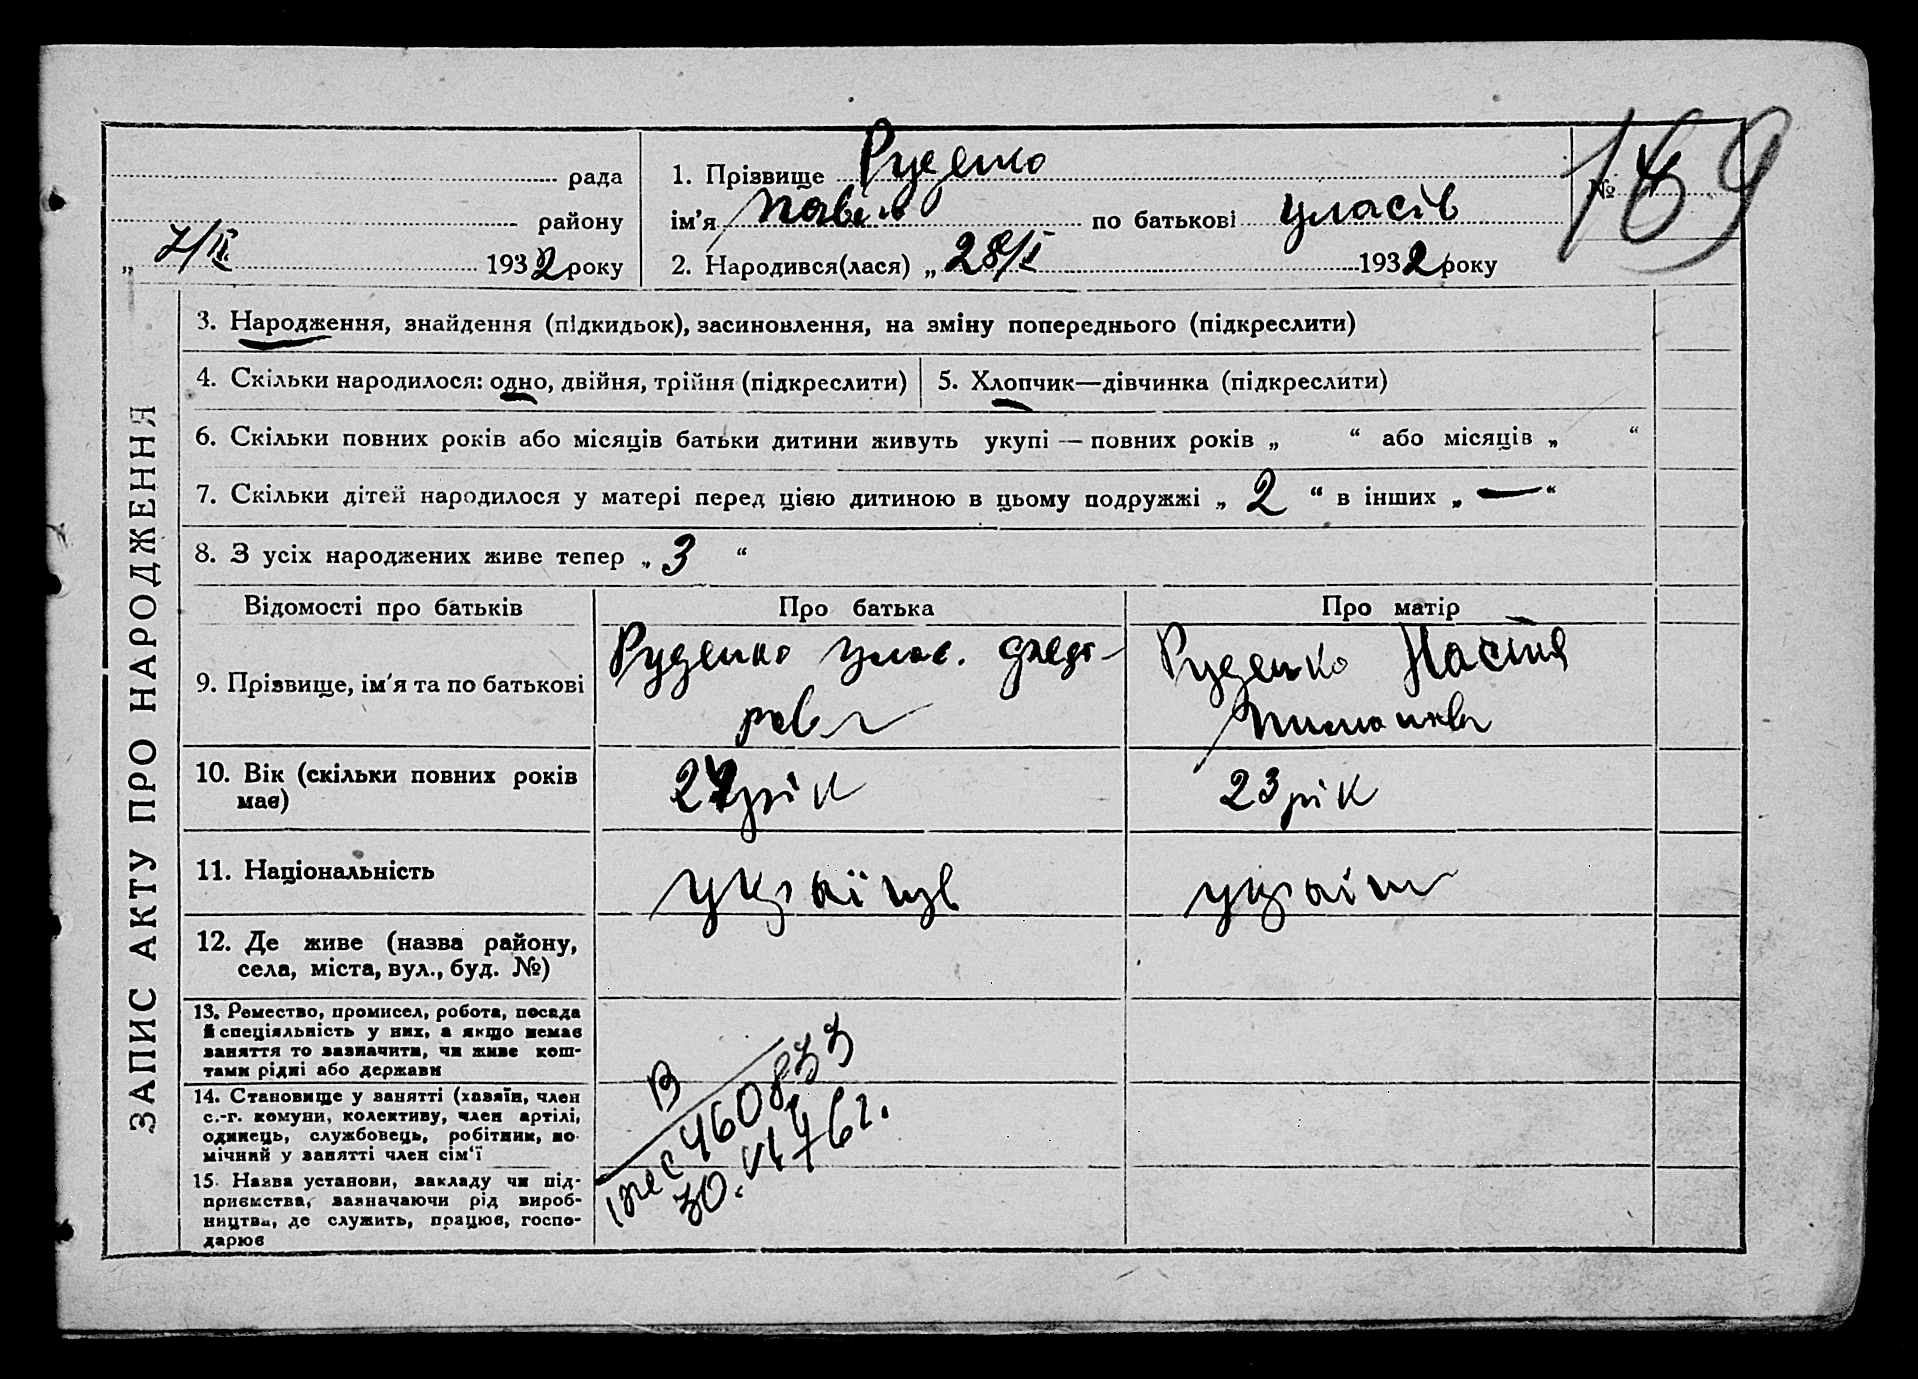 рада
району
„ 7/II 1932 року
1. Прізвище Руденко
ім’я Павло по батькові Уласів
2. Народився(лася) „ 28/I 1932 року
№ 4
169
ЗАПИС АКТУ ПРО НАРОДЖЕННЯ
3. Народження, знайдення (підкидьок), засиновлення, на зміну попереднього (підкреслити)
4. Скільки народилося: одно, двійня, трійня (підкреслити)
5. Хлопчик—дівчинка (підкреслити)
6. Скільки повних років або місяців батьки дитини живуть укупі — повних років „ “ або місяців „ “
7. Скільки дітей народилося у матері перед цією дитиною в цьому подружжі „ 2 “ в інших „ — “
8. З усіх народжених живе тепер „ 3 “
Відомості про батьків
Про батька
Про матір
9. Прізвище, ім’я та по батькові
Руденко Улас.
Руденко Настя
10. Вік (скільки повних років
має)
рік
23 рік
11. Національність
українець
україн
12. Де живе (назва району,
села, міста, вул., буд. №)
13. Ремество, промисел, робота, посада
й спеціяльність у них, а якщо немає
заняття то зазначити, чи живе кош-
тами рідні або держави
14. Становище у занятті (хазяїн, член
с.-г. комуни, колективу, член артілі,
одинець, службовець, робітник, по-
мічний у занятті член сім‘ї
15. Назва установи, закладу чи під-
приємства, зазначаючи рід вироб-
ництва, де служить, працює, госпо-
дарює
В
460833
30.VI 46г.